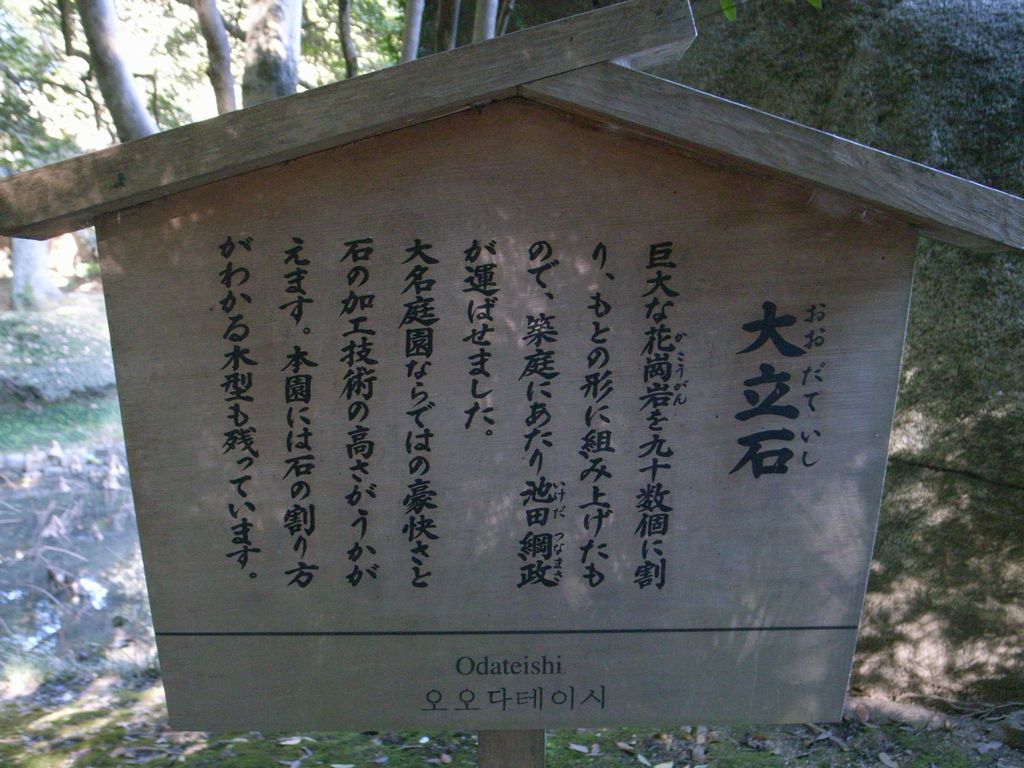 大立石
おおだていし
巨大な花崗岩を九十数個に割
かこうがん
り、もとの形に組み上げたも
ので、築庭にあたり池田綱政
いけだ つなまさ
が運ばせました。
大名庭園ならではの豪快さと
石の加工技術の高さがうかが
えます。本園には石の割り方
がわかる木型も残っています。
Odateishi
오오다테이시